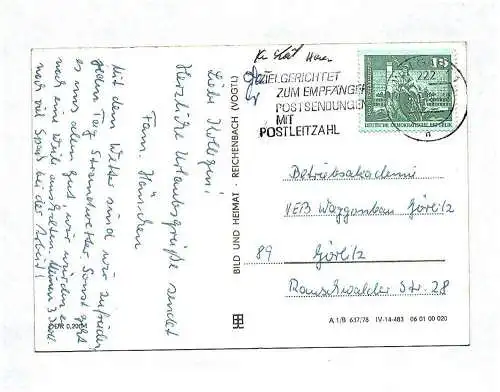 Liebe Kollegin!
Herzliche Urlaubsgrüße sendet
Fam. Hänschen
Mit dem Wetter sind wir zufrieden,
jeden Tag Strandwetter. Sonst geht
es uns allen gut, wir würden es
noch eine Weile aushalten.
noch viel Spaß bei der Arbeit!
DDR 0,20 M
BILD UND HEIMAT · REICHENBACH (VOGTL)
ZIELGERICHTET
ZUM EMPFÄNGER
POSTSENDUNGEN
MIT
POSTLEITZAHL
10
222
a
DEUTSCHE DEMOKRATISCHE REPUBLIK
Betriebsakademie
VEB Waggonbau Görlitz
89 Görlitz
Rauschwalder Str. 28
A 1/B 637/78 IV-14-483 06 01 00 020